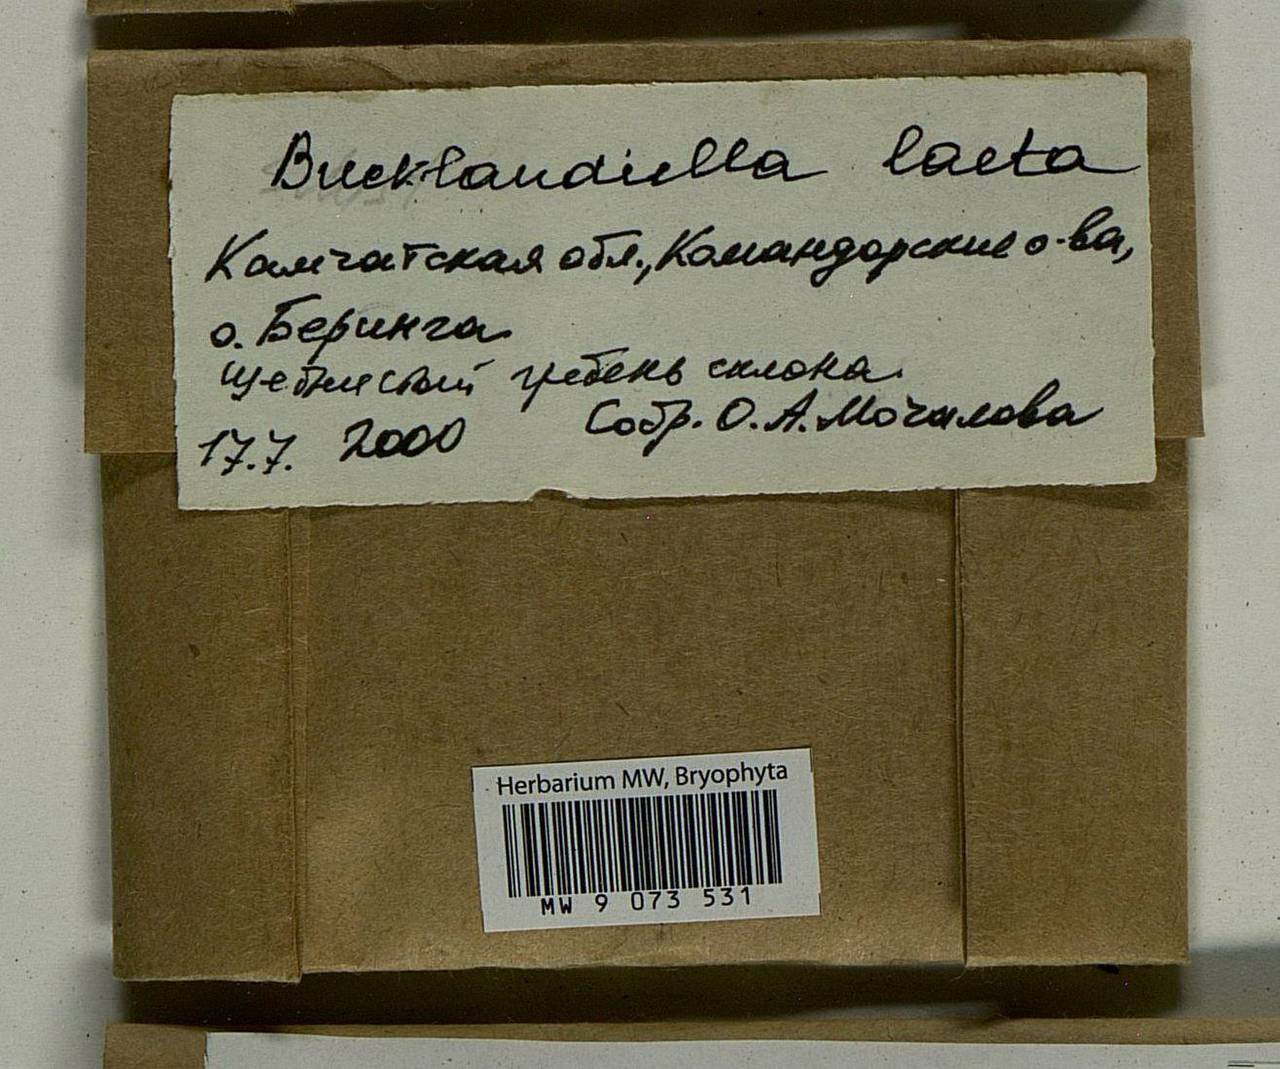 Bucklandiella laeta
Камчатская обл., Командорские о-ва,
о. Беринга
щебнистый гребень склона.
17.7. 2000 Собр. О.А. Мочалова
Herbarium MW, Bryophyta
MW 9 073 531